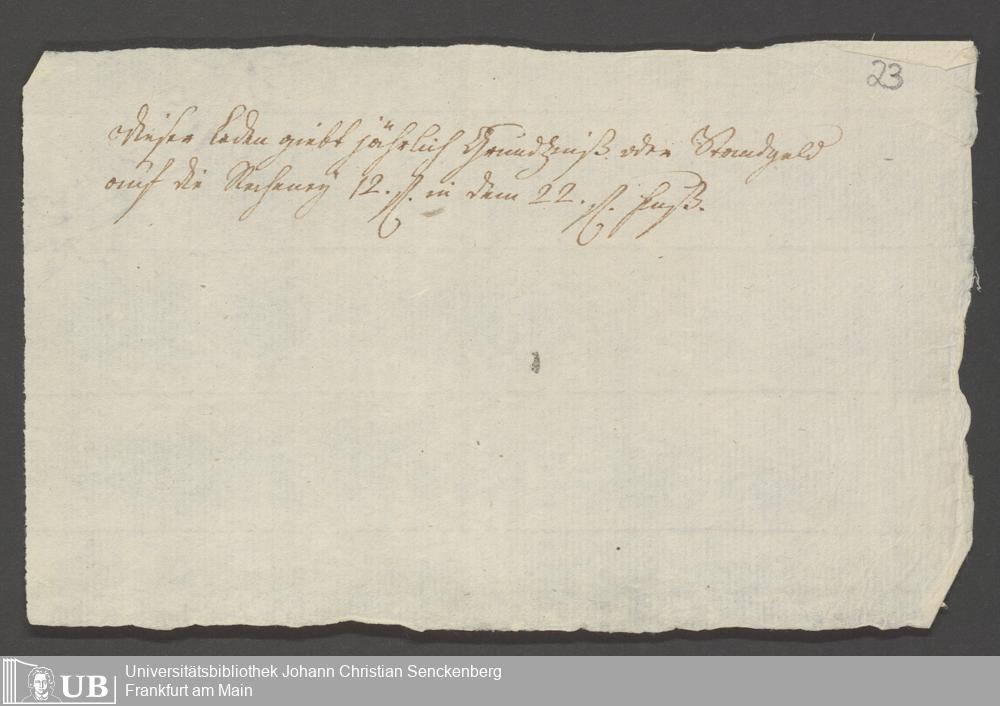 23
Dieser Laden giebt jährlich Grundzinß oder Standgeld
auf die Recheney 12. fl. in dem 22. fl. Fuß.
Universitätsbibliothek Johann Christian Senckenberg
Frankfurt am Main
UB